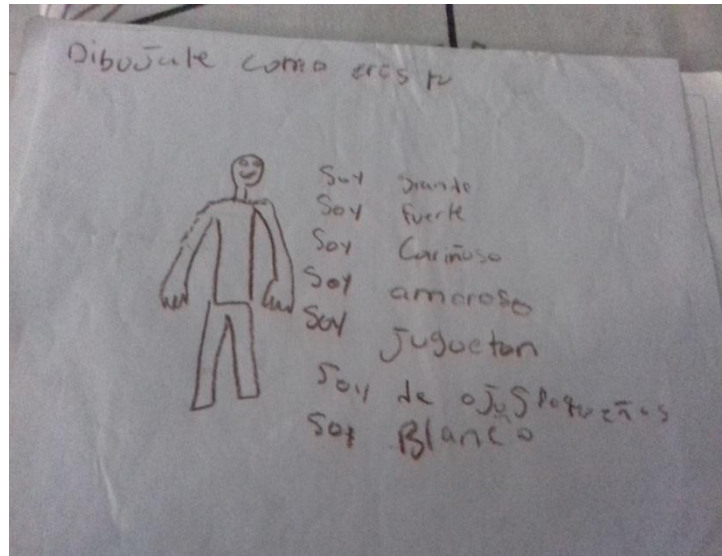 Dibujate como eres tu
Soy grande
Soy fuerte
Soy Cariñoso
Soy amoroso
Soy jugueton
Soy de ojos pequeños
Soy Blanco